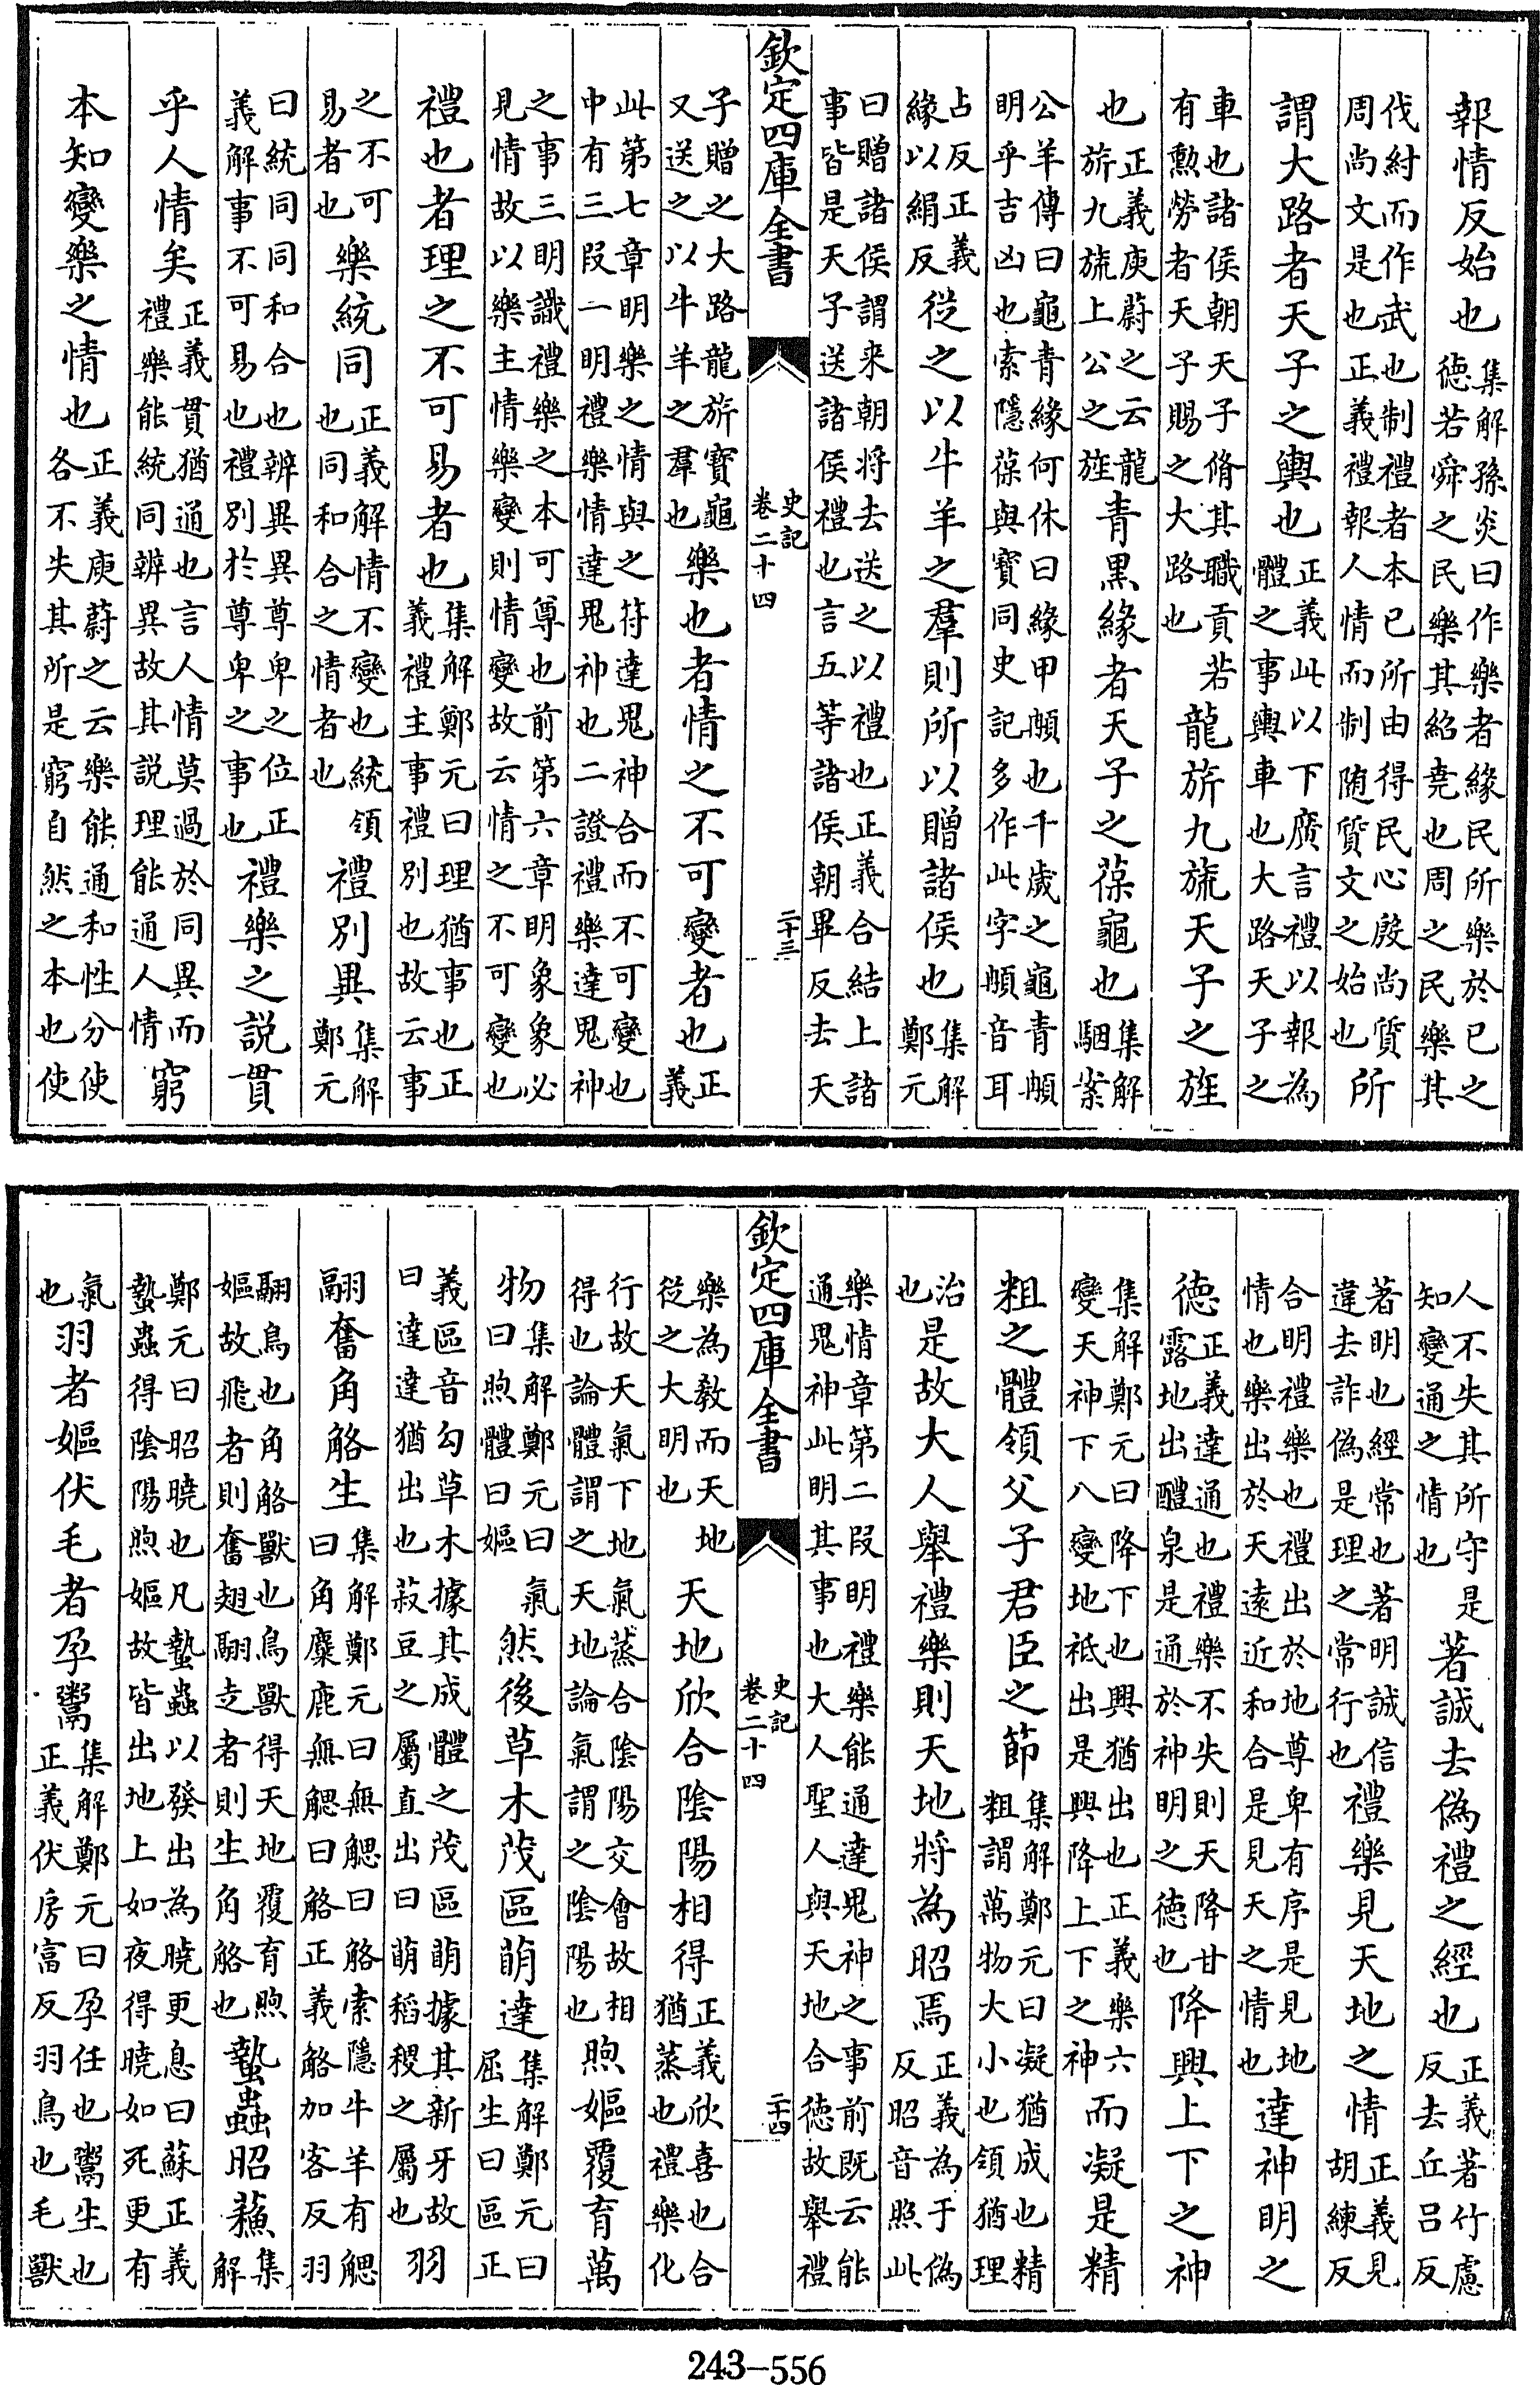 報情反始也集解孫炎曰作樂者緣民所樂於已之德若舜之民樂其紹堯也周之民樂其
伐紂而作武也制禮者本已所由得民心殷尚質周尚文是也正義禮報人情而制随質文之始也所
謂大路者天子之輿也正義此以下廣言禮以報為體之事輿車也大路天子之
車也諸侯朝天子脩其職貢有勲勞者天子賜之大路也若龍旂九旒天子之旌
也正義庾蔚之云龍旂九旒上公之旌青黒緣者天子之葆龜也集解駰案
公羊傳曰龜青緣何休曰緣甲䫇也千歳之龜青䫇明乎吉凶也索隱葆與寳同史記多作此字䫇音耳
占反正義緣以絹反從之以牛羊之羣則所以贈諸侯也集解鄭元
曰贈諸侯謂来朝将去送之以禮也正義合結上諸事皆是天子送諸侯禮也言五等諸侯朝畢反去天
欽定四庫全書 史記卷二十四 二十三
子贈之大路龍旂寳龜又送之以牛羊之羣也樂也者情之不可變者也正義
此第七章明樂之情與之符達鬼神合而不可變也中有三段一明禮樂情達鬼神也二證禮樂達鬼神
之事三明識禮樂之本可尊也前第六章明象象必見情故以樂主情樂變則情變故云情之不可變也
禮也者理之不可易者也集解鄭元曰理猶事也正義禮主事禮別也故云事
之不可易者也樂統同正義解情不變也統領也同和合之情者也禮別異集解鄭元
曰統同同和合也辨異異尊卑之位正義解事不可易也禮別於尊卑之事也禮樂之説貫
乎人情矣正義貫猶通也言人情莫過於同異而禮樂能統同辨異故其説理能通人情窮
本知變樂之情也正義庾蔚之云樂能通和性分使各不失其所是窮自然之本也使
人不失其所守知變通之情也是著誠去偽禮之經也正義著竹慮反去丘吕反
著明也經常也著明誠信違去詐偽是理之常行也禮樂見天地之情正義見胡練反
合明禮樂也禮出於地尊卑有序是見地情也樂出於天遠近和合是見天之情也達神明之
德正義達通也禮樂不失則天降甘露地出醴泉是通於神明之德也降興上下之神
集解鄭元曰降下也興猶出也正義樂六變天神下八變地祇出是興降上下之神而凝是精
粗之體領父子君臣之節集解鄭元曰凝猶成也精粗謂萬物大小也領猶理
治也是故大人舉禮樂則天地將為昭焉正義為于偽反昭音照此
樂情章第二段明禮樂能通達鬼神之事前既云能通鬼神此明其事也大人聖人與天地合徳故舉禮
樂為教而天地從之大明也天地欣合陰陽相得正義欣喜也合猶蒸也禮樂化
欽定四庫全書 史記卷二十四 二十四
行故天氣下地氣蒸合陰陽交會故相得也論體謂之天地論氣謂之陰陽也煦嫗覆育萬
物集解鄭元曰氣曰煦體曰嫗然後草木茂區萌達集解鄭元曰屈生曰區正
義區音勾草木據其成體之茂區萌據其新牙故曰達達猶出也菽豆之屬直出曰萌稻稷之屬也羽
翮奮角觡生集解鄭元曰無䚡曰觡索隱牛羊有䚡曰角麋鹿無䚡曰觡正義觡加客反羽
翮鳥也角觡獸也鳥獸得天地覆育煦嫗故飛者則奮翅翮走者則生角觡也蟄蟲昭蘓集解
鄭元曰昭曉也凡蟄蟲以發出為曉更息曰蘇正義蟄蟲得陰陽煦嫗故皆出地上如夜得曉如死更有
氣也羽者嫗伏毛者孕鬻集解鄭元曰孕任也鬻生也正義伏房富反羽鳥也毛獸
243–556